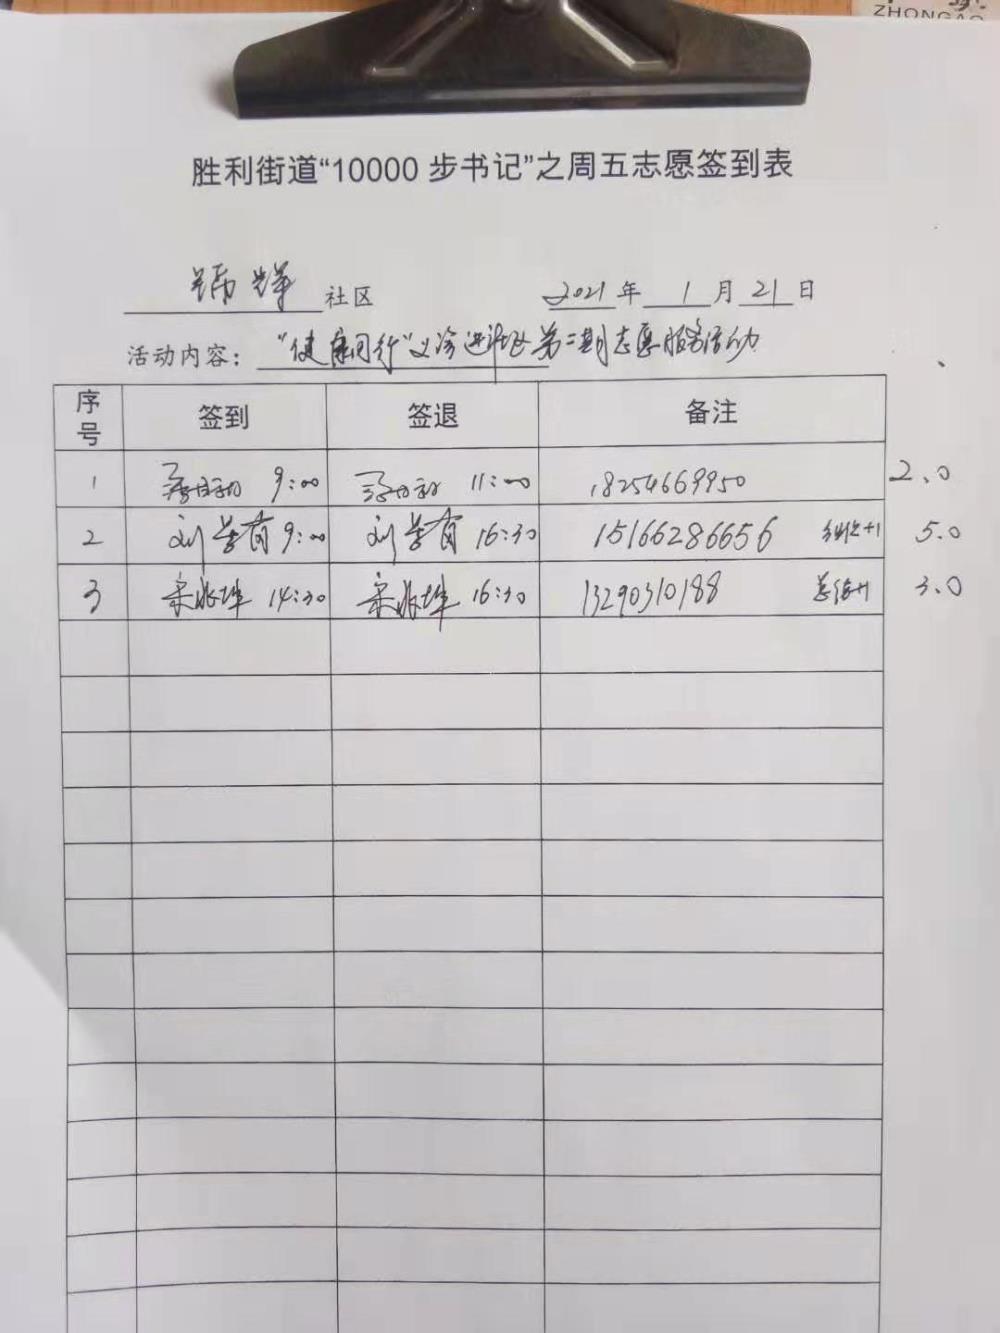 ZHONGAO
胜利街道“10000 步书记”之周五志愿签到表
社区 2021 年 1 月 21 日
活动内容： “健康同行”义诊进社区第二期志愿服务活动
序号 签到 签退 备注
1 9:00 11:00 18254669950 2.0
2 刘学有 9:00 刘学有 16:30 15166286656 5.0
3 宋兆坤 14:30 宋兆坤 16:30 13290310188 3.0